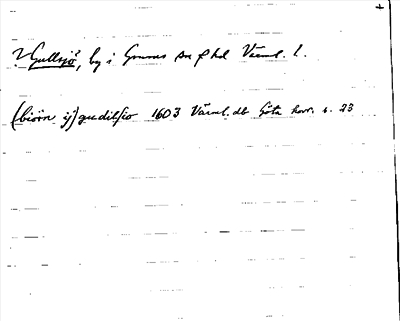 ? Gullsjö, by i Grums sn o hd Värml. l.
(biörn ij) gudilsio 1603 Värml. db Göta hovr. s. 23